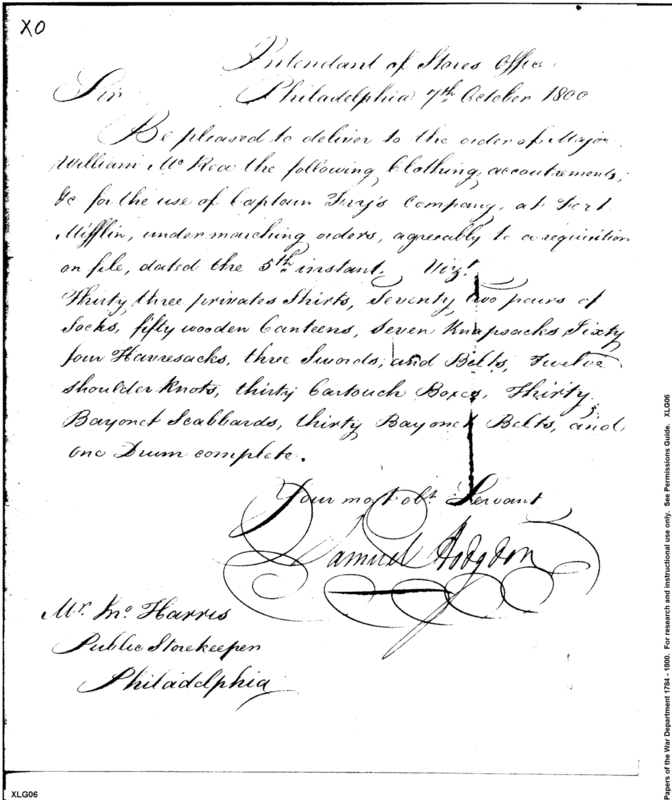 XO
Intendant of Stores Office
Sir Philadelphia 7th October 1800
Be pleased to deliver to the order of Major
William McRea the following Clothing, accoutrements,
&c for the use of Captain Ivey's Company, at Fort
Mifflin, under marching orders, agreeably to a requisition
on file, dated the 5th instant. Vizt.
Thirty three privates Shirts, Seventy two pairs of
Socks, fifty wooden Canteens, seven Knapsacks Sixty
four Havresacks, three Swords, and Belts, Twelve
shoulder Knots, thirty Cartouch Boxes, Thirty
Bayonet Scabbards, thirty Bayonet Belts, and
one Drum complete.
Your most obt. Servant
Samuel Hodgdon
Mr. Jno Harris
Public Storekeeper
Philadelphia
XLG06
Papers of the War Department 1784 - 1800. For research and instructional use only. See Permissions Guide. XLG06